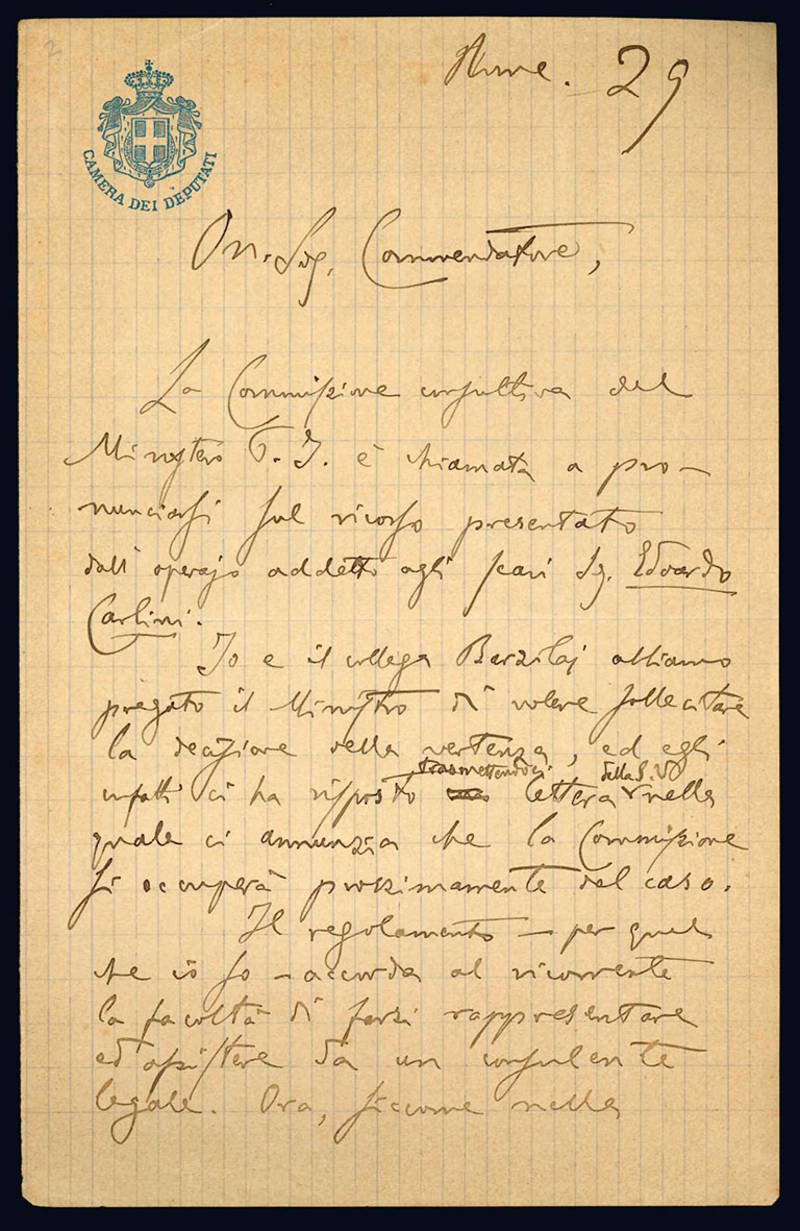 2
CAMERA DEI DEPUTATI
29
On. Sig. Commendatore,
La Commissione consultiva del
Ministero P. I. è chiamata a pro-
nunciarsi sul ricorso presentato
dall'operajo addetto agli scavi Sig. Edoardo
Carlini.
Io e il collega Barzilaj abbiamo
pregato il Ministro di volere sollecitare
la decisione della vertenza, ed egli
infatti ci ha risposto trasmettendoci lettera della S.V. nella
quale ci annunzia che la Commissione
si occuperà prossimamente del caso.
Il regolamento — per quel
che io so — accorda al ricorrente
la facoltà di farsi rappresentare
ed assistere da un consulente
legale. Ora, siccome nella